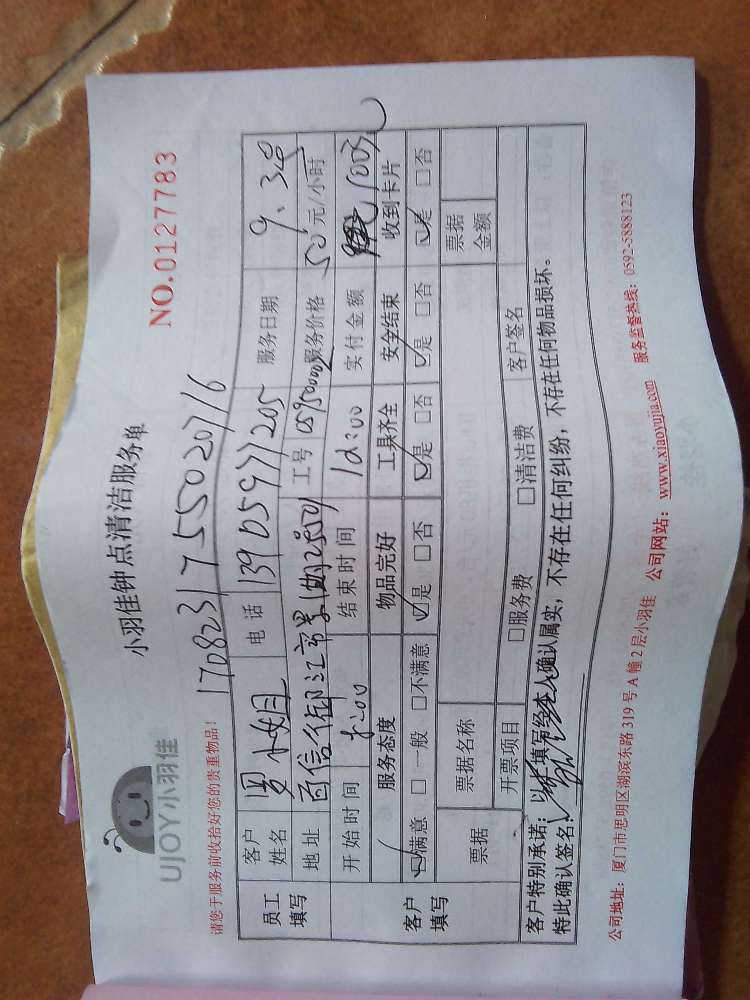 小羽佳钟点清洁服务单
NO.0127783
UJOY小羽佳
请您于服务前收拾好您的贵重物品!
170823175502071 6
员工填写
客户姓名 小姐 电话 13905977205 服务日期 9.3
地址 工号 服务价格 50元/小时
客户填写
开始时间 8:00 结束时间 12:00 实付金额
服务态度 物品完好 工具齐全 安全结束 收到卡片
☑满意 □一般 □不满意 ☑是 □否 ☑是 □否 ☑是 □否 ☑是 □否
票据 票据名称 票据金额
开票项目 □服务费 □清洁费 客户签名
客户特别承诺:以上填写经本人确认属实,不存在任何纠纷,不存在任何物品损坏。
特此确认签名:
公司地址:厦门市思明区湖滨东路 319 号 A 幢 2 层小羽佳 公司网站:www.xiaoyujia.com 服务监督热线:0592-5888123